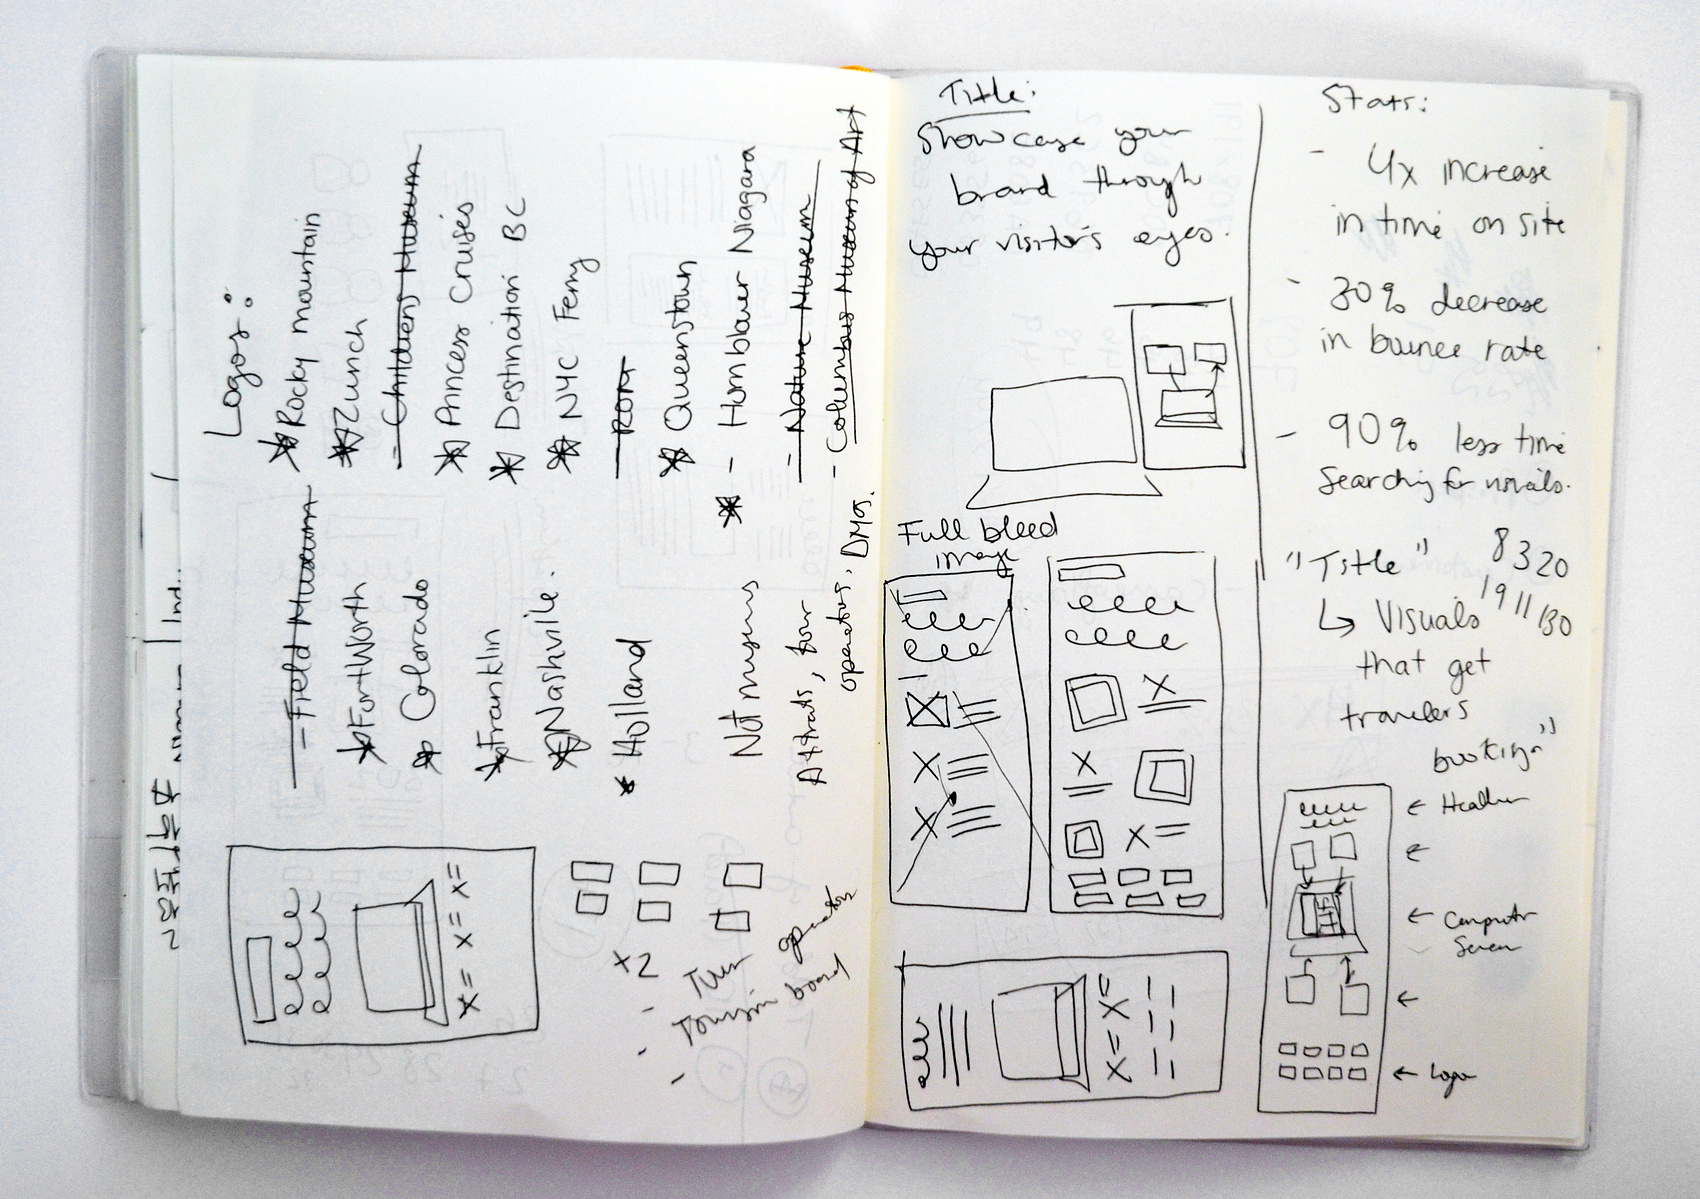 Logos:
Rocky mountain
Zunch
- Childrens Museum
Princess Cruises
Destination BC
NYC Ferry
- ROM
Queenstown
- Hornblower Niagara
- Nature Museum
- Columbus Museum of Art
- Field Museum
Fort Worth
Colorado
Franklin
Nashville.
Holland
Not museums
Attrats, tour
operators, DMOs.
x2
- Tour operator
- Tourism board
-
Title:
Showcase your
brand through
your visitor's eyes.
Full bleed
image
Stats:
- 4x increase
in time on site
- 30% decrease
in bounce rate
- 90% less time
Searching for visuals.
8320
1911130
"Title"
↳ Visuals
that get
travelers
booking"
← Header
←
← Computer
Screen
←
← Logos